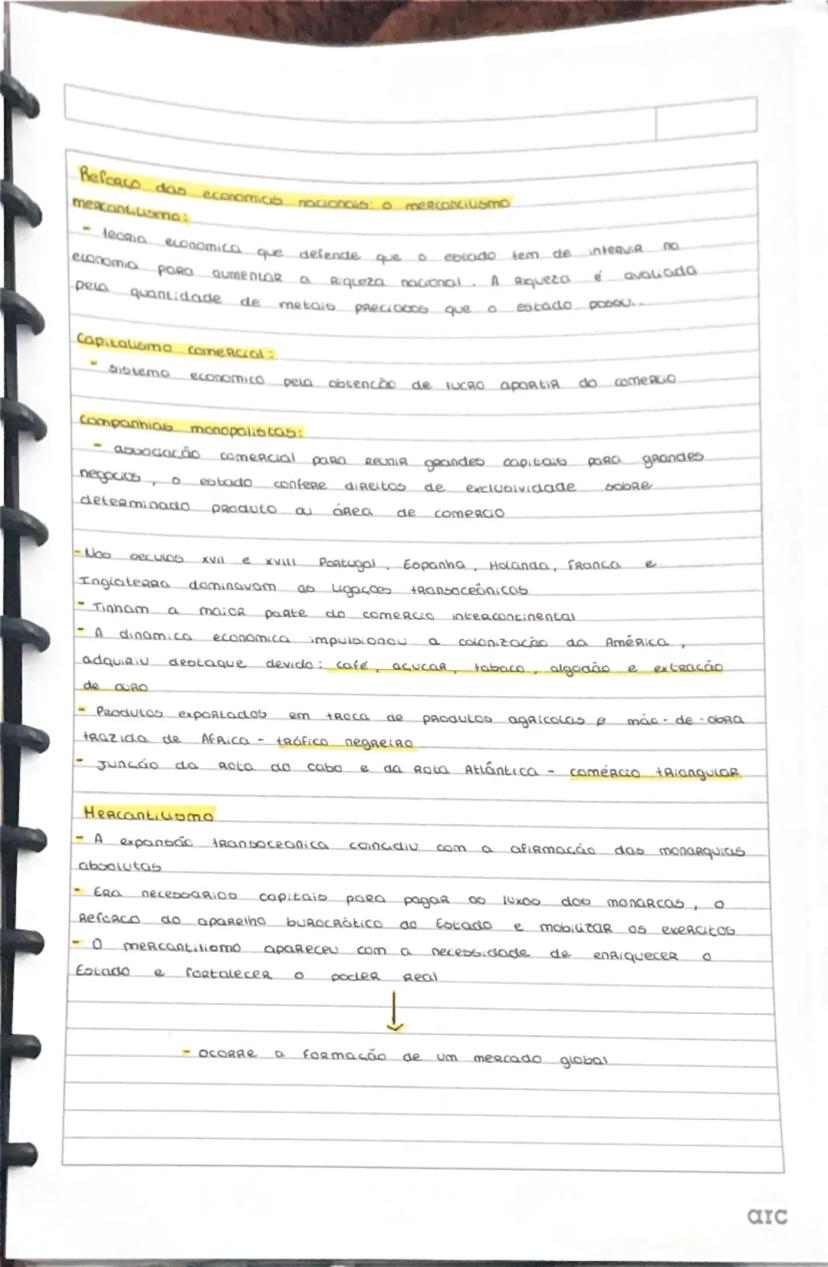 Reforço das economias nacionais: o mercantilismo
mercantilismo:
- teoria economica que defende que o estado tem de intervir na
economia para aumentar a riqueza nacional. A riqueza é avaliada
pela quantidade de metais preciosos que o estado possui.
Capitalismo comercial:
- sistema economico pela obtenção de lucro apartir do comercio
Companhias monopolistas:
- associação comercial para reunir grandes capitais para grandes
negocios, o estado confere direitos de exclusividade sobre
determinado produto ou área de comercio
- Nos seculos XVII e XVIII Portugal, Espanha, Holanda, França e
Inglaterra dominavam as ligações transoceânicas
- Tinham a maior parte do comercio intercontinental
- A dinamica económica impulsionou a colonização da América,
adquiriu destaque devido: café, açucar, tabaco, algodão e extração
de ouro
- Produtos exportados em troca de produtos agricolas e mão-de-obra
trazida de Africa - tráfico negreiro
- Junção da Rota do cabo e da Rota Atlântica - comércio triangular
Mercantilismo
- A expansão transoceanica coincidiu com a afirmação das monarquias
absolutas
- Era necessarios capitais para pagar os luxos dos monarcas, o
reforço do aparelho burocrático do Estado e mobilizar os exercitos
- O mercantilismo apareceu com a necessidade de enriquecer o
Estado e fortalecer o poder real
↓
- ocorre a formação de um mercado global
arc